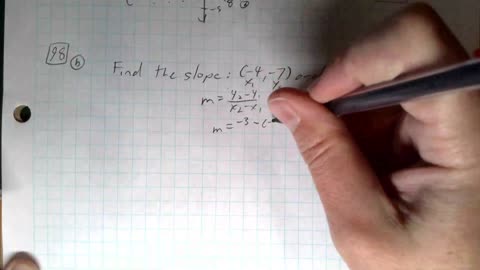 -5 8
98 b
Find the slope: (-4, -7) and
x₁ y₁
m = y₂-y₁
x₂-x₁
m = -3 -(-